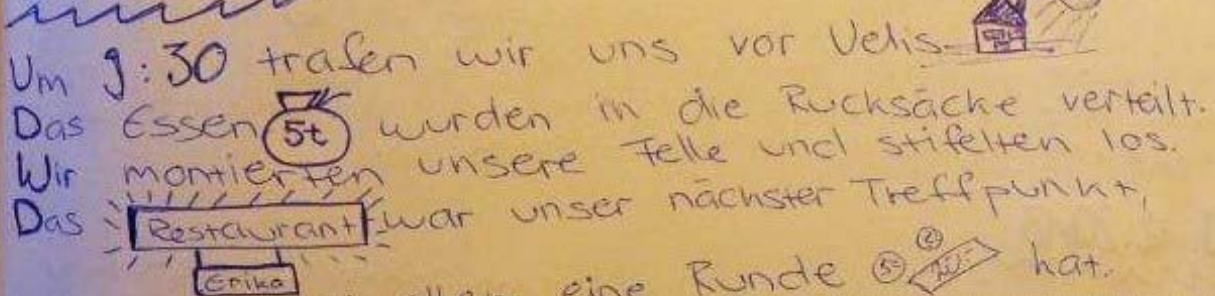 Um 9:30 trafen wir uns vor Velis
Das Essen 5t wurden in die Rucksäcke verteilt.
Wir montierten unsere Felle und stifelten los.
Das Restaurant war unser nächster Treffpunkt,
Erika
eine Runde hat.